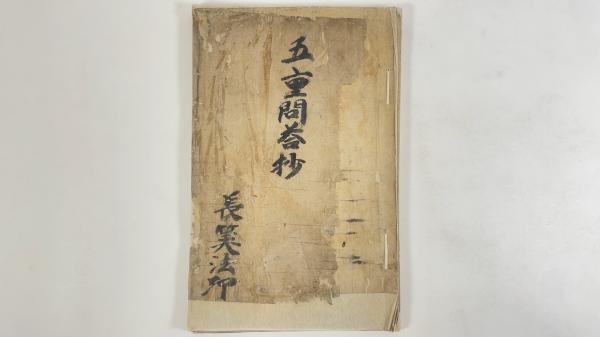 五重問答抄
長笑法印